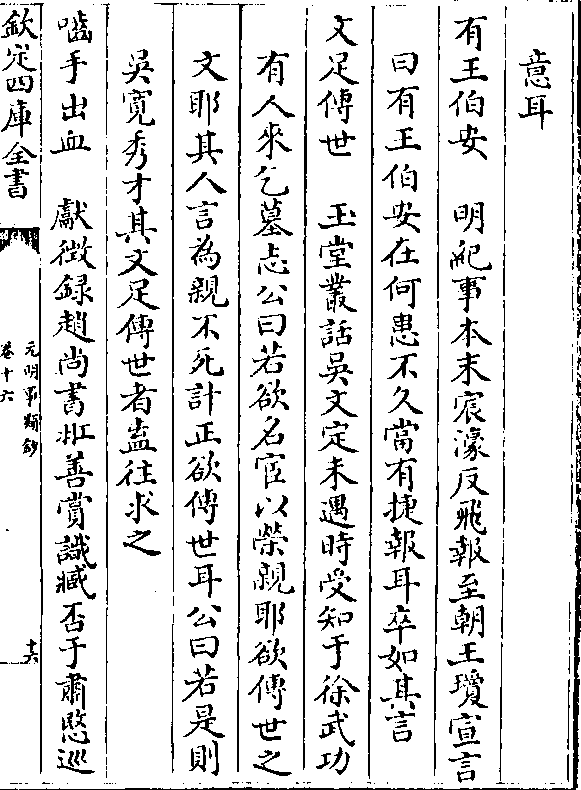 意耳
有王伯安　明紀事本末宸濠反飛報至朝王瓊宣言
曰有王伯安在何患不久當有捷報耳卒如其言
文足傳世　玉堂叢話吳文定未遇時受知于徐武功
有人來乞墓志公曰若欲名宦以榮親耶欲傳世之
文耶其人言為親不死計正欲傳世耳公曰若是則
吳寛秀才其文足傳世者盍往求之
嚙手出血　獻徵録趙尚書羾善賞識臧否于肅愍巡
欽定四庫全書
元明事類鈔
卷十六
十六